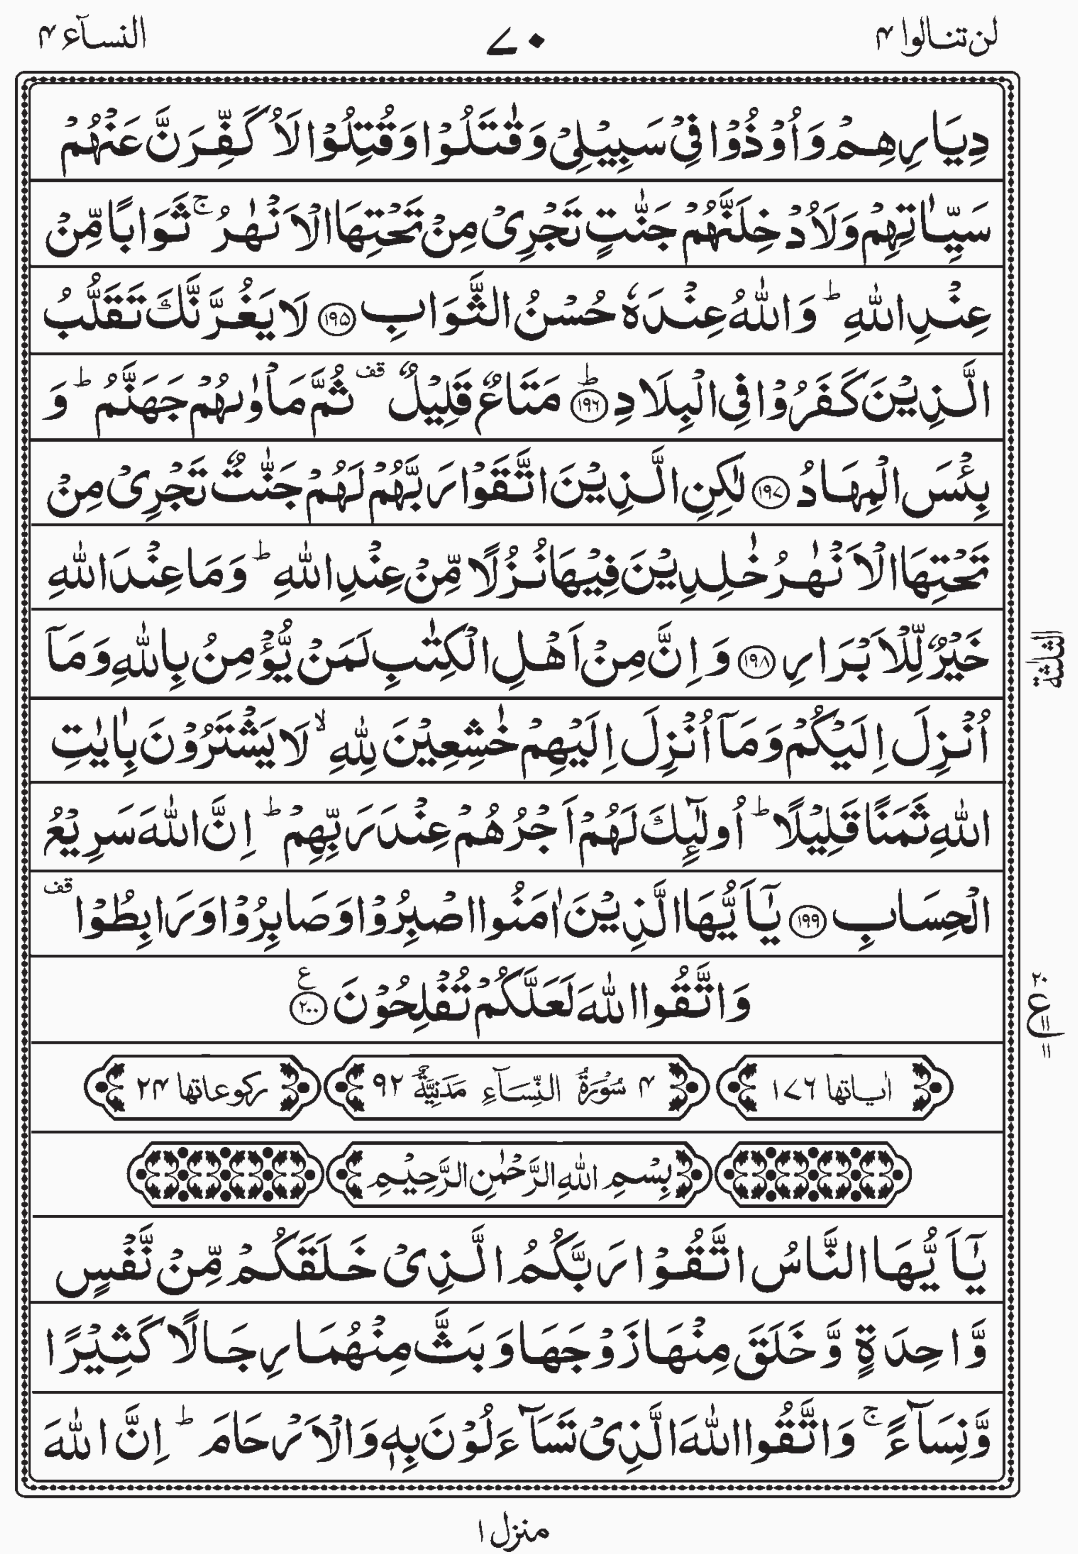 لن تنالوا ۴
۷۰
النسآء ۴
دِيَارِهِمْ وَاُوْذُوْا فِيْ سَبِيْلِيْ وَقٰتَلُوْا وَقُتِلُوْا لَاُكَفِّرَنَّ عَنْهُمْ
سَيِّاٰتِهِمْ وَلَاُدْخِلَنَّهُمْ جَنّٰتٍ تَجْرِيْ مِنْ تَحْتِهَا الْاَنْهٰرُ ۚ ثَوَابًا مِّنْ
عِنْدِ اللّٰهِ ؕ وَاللّٰهُ عِنْدَهٗ حُسْنُ الثَّوَابِ ﴿۱۹۵﴾ لَا يَغُرَّنَّكَ تَقَلُّبُ
الَّذِيْنَ كَفَرُوْا فِي الْبِلَادِ ؕ﴿۱۹۶﴾ مَتَاعٌ قَلِيْلٌ قف ثُمَّ مَاْوٰىهُمْ جَهَنَّمُ ؕ وَ
بِئْسَ الْمِهَادُ ﴿۱۹۷﴾ لٰكِنِ الَّذِيْنَ اتَّقَوْا رَبَّهُمْ لَهُمْ جَنّٰتٌ تَجْرِيْ مِنْ
تَحْتِهَا الْاَنْهٰرُ خٰلِدِيْنَ فِيْهَا نُزُلًا مِّنْ عِنْدِ اللّٰهِ ؕ وَمَا عِنْدَ اللّٰهِ
خَيْرٌ لِّلْاَبْرَارِ ﴿۱۹۸﴾ وَاِنَّ مِنْ اَهْلِ الْكِتٰبِ لَمَنْ يُّؤْمِنُ بِاللّٰهِ وَمَآ
الثلثة
اُنْزِلَ اِلَيْكُمْ وَمَآ اُنْزِلَ اِلَيْهِمْ خٰشِعِيْنَ لِلّٰهِ ۙ لَا يَشْتَرُوْنَ بِاٰيٰتِ
اللّٰهِ ثَمَنًا قَلِيْلًا ؕ اُولٰٓئِكَ لَهُمْ اَجْرُهُمْ عِنْدَ رَبِّهِمْ ؕ اِنَّ اللّٰهَ سَرِيْعُ
الْحِسَابِ ﴿۱۹۹﴾ يٰٓاَيُّهَا الَّذِيْنَ اٰمَنُوا اصْبِرُوْا وَصَابِرُوْا وَرَابِطُوْا قف
وَاتَّقُوا اللّٰهَ لَعَلَّكُمْ تُفْلِحُوْنَ ع ﴿۲۰۰﴾
۲۰ ع ۱۱ ۱۱
اٰياتها ۱۷۶
۴ سُوْرَةُ النِّسَآءِ مَدَنِيَّةٌ ۹۲
ركوعاتها ۲۴
بِسْمِ اللّٰهِ الرَّحْمٰنِ الرَّحِيْمِ
يٰٓاَيُّهَا النَّاسُ اتَّقُوْا رَبَّكُمُ الَّذِيْ خَلَقَكُمْ مِّنْ نَّفْسٍ
وَّاحِدَةٍ وَّخَلَقَ مِنْهَا زَوْجَهَا وَبَثَّ مِنْهُمَا رِجَالًا كَثِيْرًا
وَّنِسَآءً ۚ وَاتَّقُوا اللّٰهَ الَّذِيْ تَسَآءَلُوْنَ بِهٖ وَالْاَرْحَامَ ؕ اِنَّ اللّٰهَ
منزل ۱